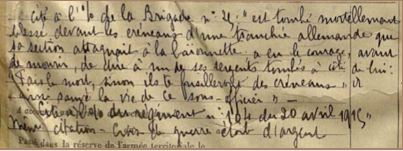 cité à l'o/o de la Brigade n° 24, "est tombé mortellement
blessé devant les créneaux d'une tranchée allemande que
sa section attaquait à la baïonnette a eu le courage, avant
de mourir, de dire à un de ses sergents tombés à côté de lui:
"Fais le mort, sinon ils te fusilleront des créneaux" 
ainsi sauvé la vie de ce sous-officier" -
Cité à l'o/o du régiment n° 184 du 30 avril 1915"
Même citation - Croix de guerre étoile d'argent
dans la réserve de l'armée territoriale le